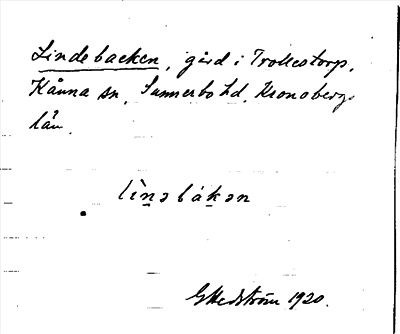 Lindebacken, gård i Trotestorp,
Kånna sn, Sunnerbo hd, Kronobergs
län
lìnəbákən
G Hedström 1920.